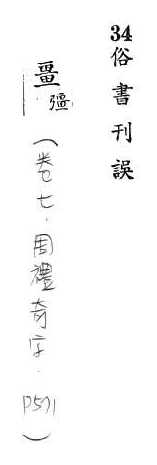 34俗書刊誤
畺 彊
(卷七．周禮奇字．P571)